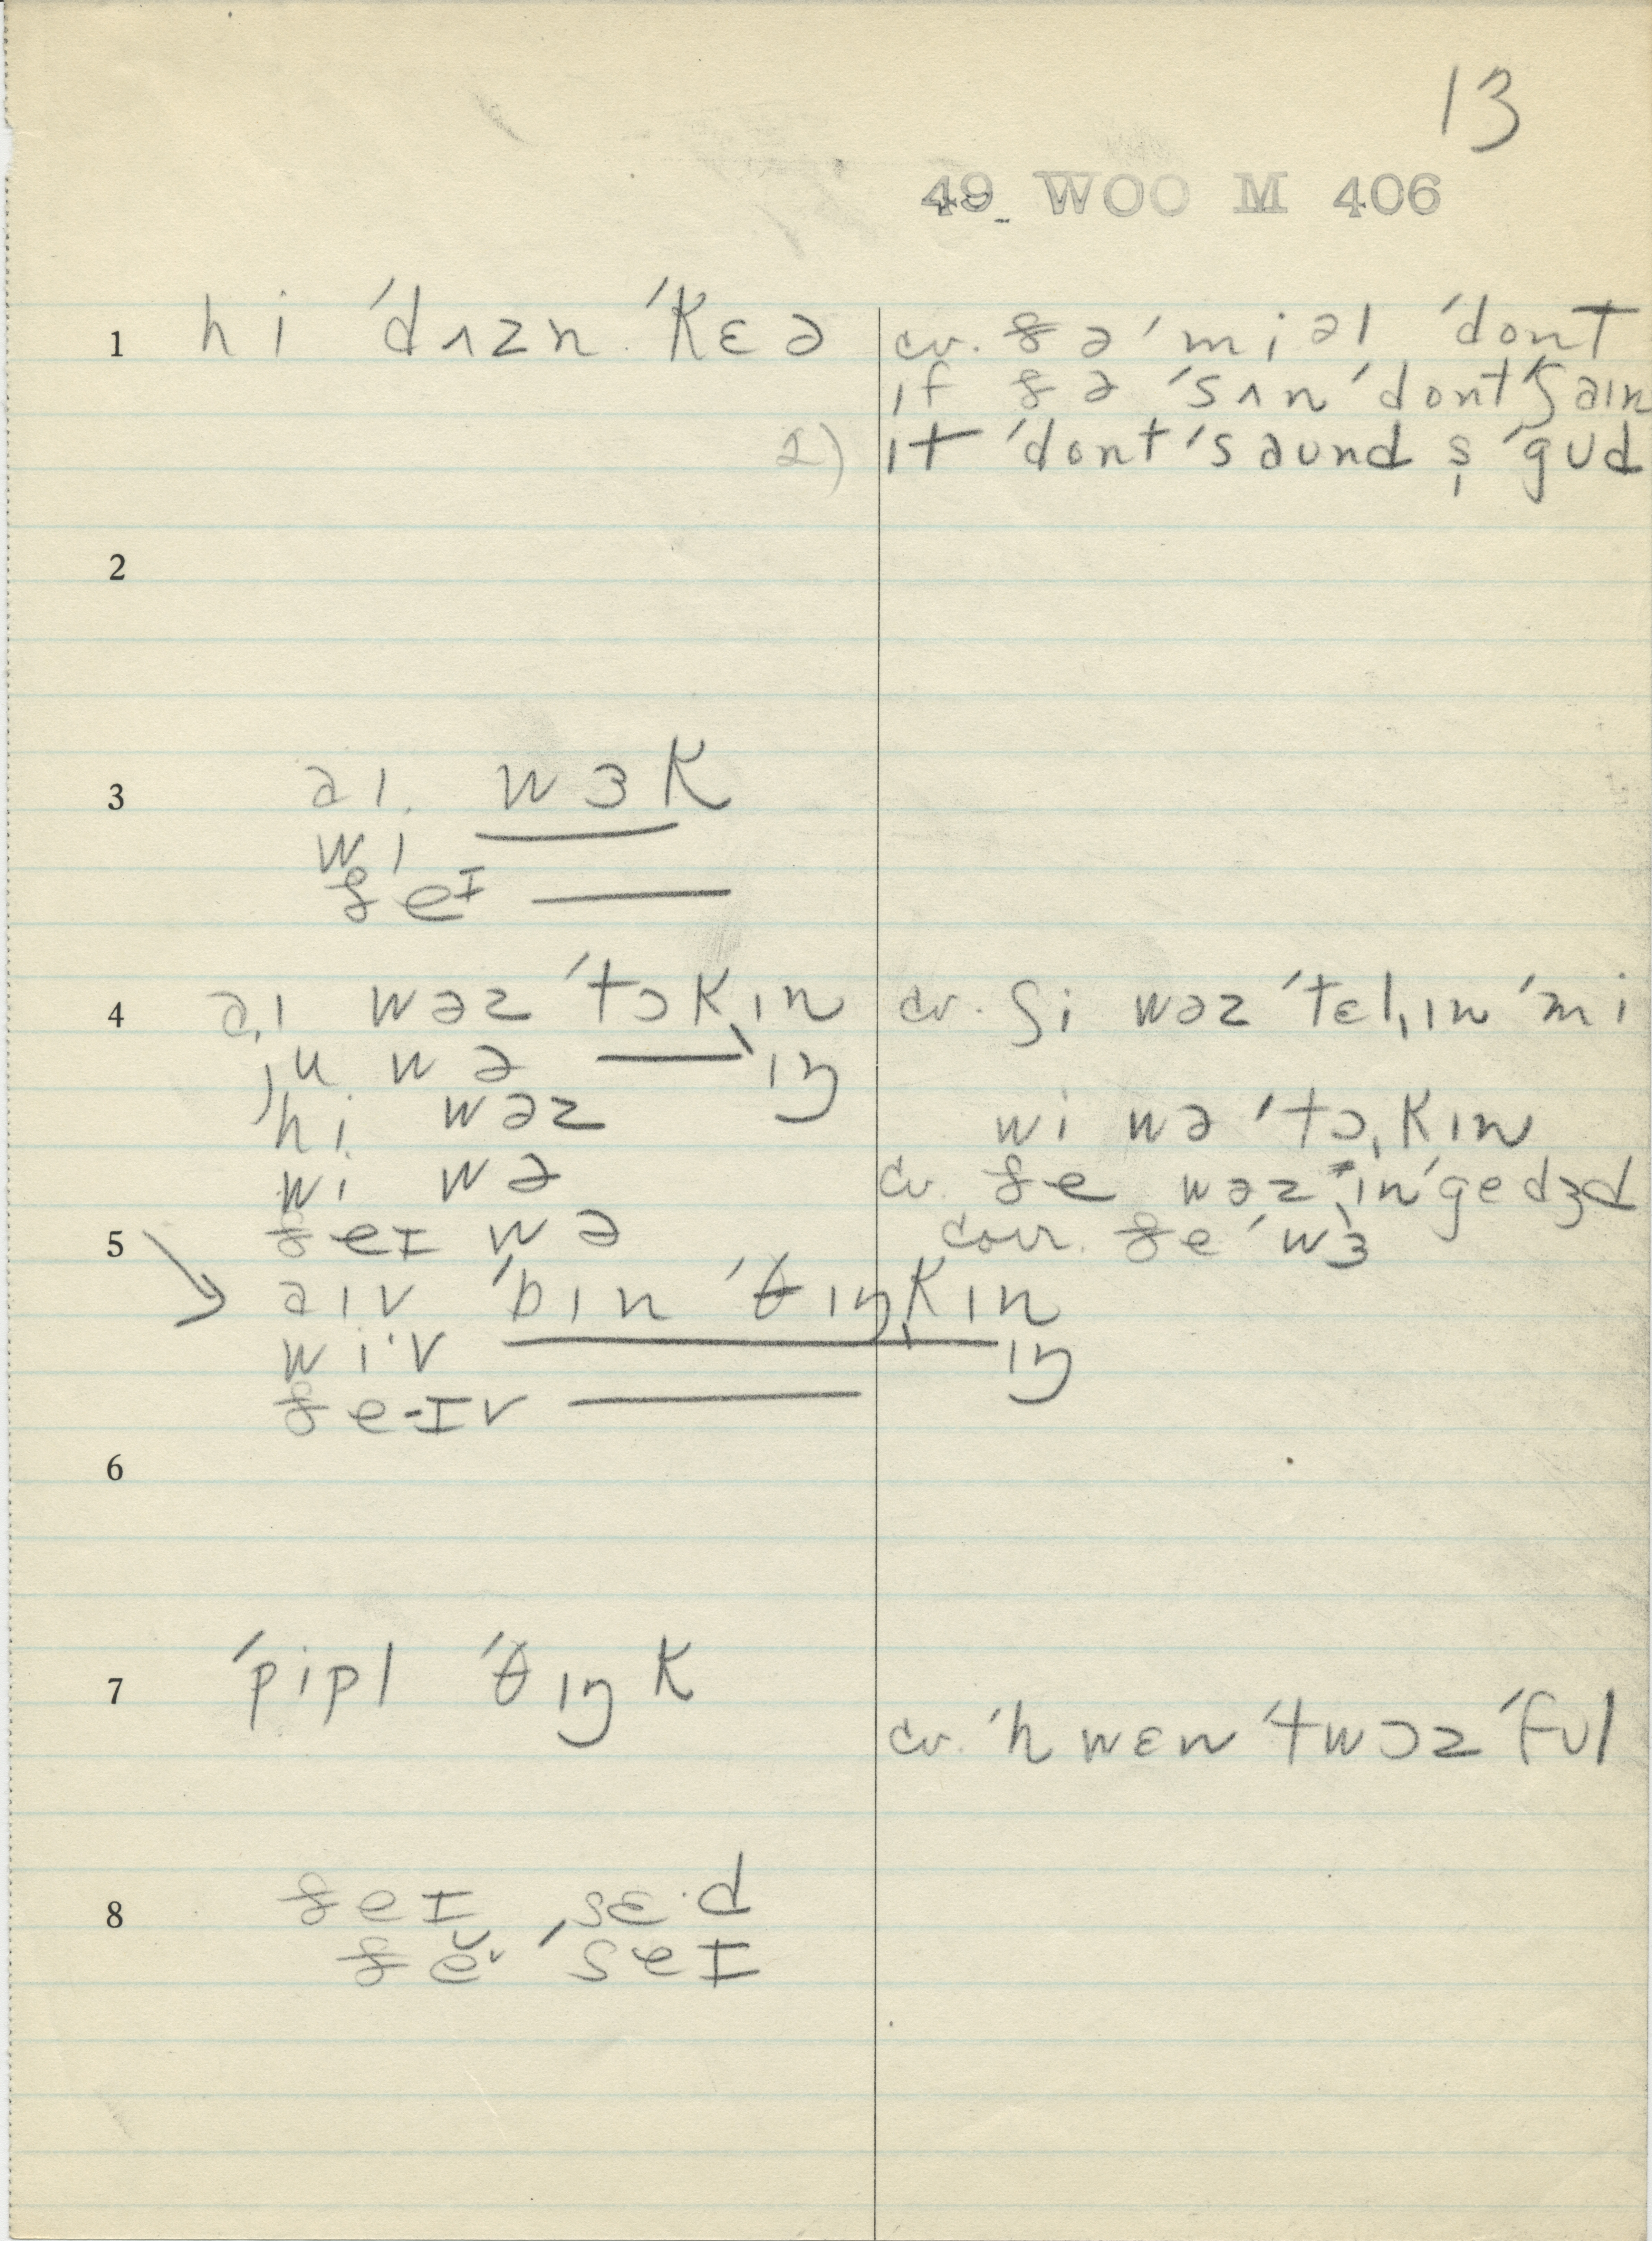 13
49 WOO M 406
1 hi ˈdʌzn ˈkɛə
cv. ðə ˈmiəl ˈdont
ɪf ðə ˈsʌn ˈdont ˈʃaɪn
2) ɪt ˈdont ˈsaʊnd s̩ ˈgʊd
2
3 aɪ wɜk
wi
ðeɪ
4 aɪ wəz ˈtɔkɪn
cv. ʃi wəz ˈtɛlɪn ˈmi
ju wə ɪŋ
hi wəz
wi wə ˈtɔkɪn
wi wə
cv. ðe wəz ɪnˈgedʒd
5 ðeɪ wə
corr. ðe ˈwɜ
aɪv ˈbɪn ˈθɪŋkɪn
wi·v ɪŋ
ðe-ɪv
6
7 ˈpipl ˈθɪŋk
cv. ˈhwɛn ˈtwɔz ˈfʊl
8 ðeɪ ˌsɛ·d
ðĕ˅ ˈseɪ